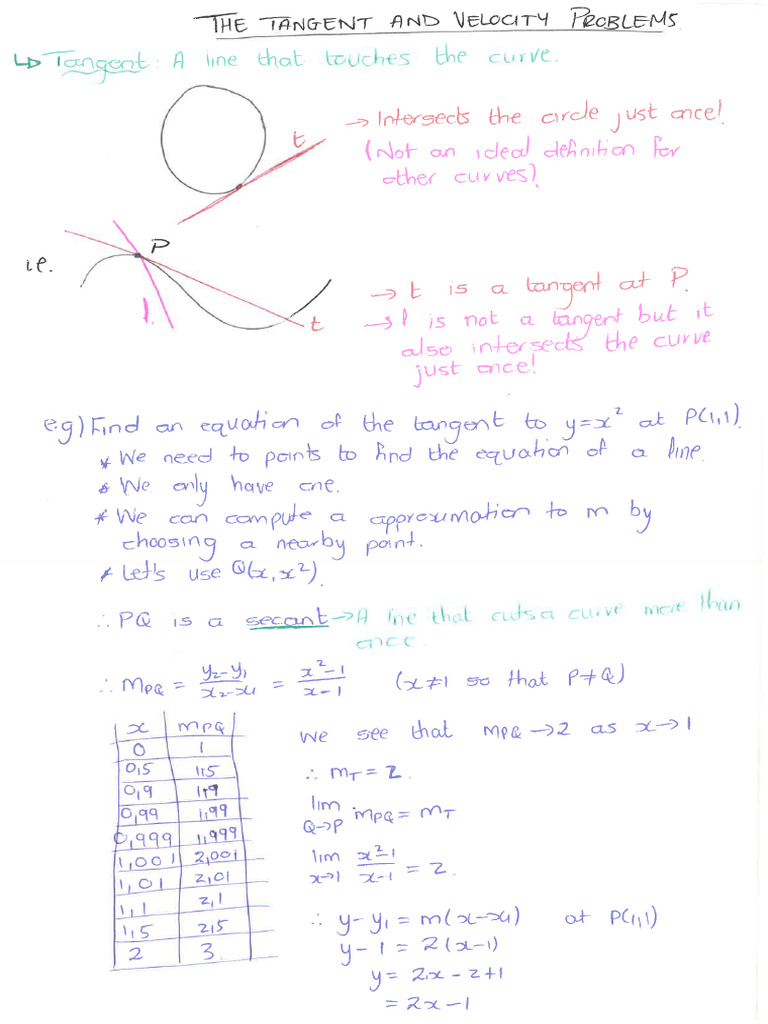 THE TANGENT AND VELOCITY PROBLEMS.
↳ Tangent: A line that touches the curve.
→ Intersects the circle just once!
(Not an ideal definition for
other curves).
t
P
i.e.
l.
t
→ t is a tangent at P.
→ l is not a tangent but it
also intersects the curve
just once!
e.g) Find an equation of the tangent to y=x² at P(1,1).
* We need to points to find the equation of a line.
* We only have one.
* We can compute a approximation to m by
choosing a nearby point.
* Let's use Q(x, x²).
∴ PQ is a secant → A line that cuts a curve more than
once.
∴ mPQ = (y₂-y₁)/(x₂-x₁) = (x²-1)/(x-1) (x≠1 so that P≠Q)
x | mPQ
0 | 1
0,5 | 1,5
0,9 | 1,9
0,99 | 1,99
0,999 | 1,999
1,001 | 2,001
1,01 | 2,01
1,1 | 2,1
1,5 | 2,5
2 | 3.
We see that mPQ → 2 as x → 1
∴ mT = 2.
lim Q→P mPQ = mT
lim x→1 (x²-1)/(x-1) = 2.
∴ y-y₁ = m(x-x₁) at P(1,1)
y-1 = 2(x-1)
y = 2x-2+1
= 2x-1